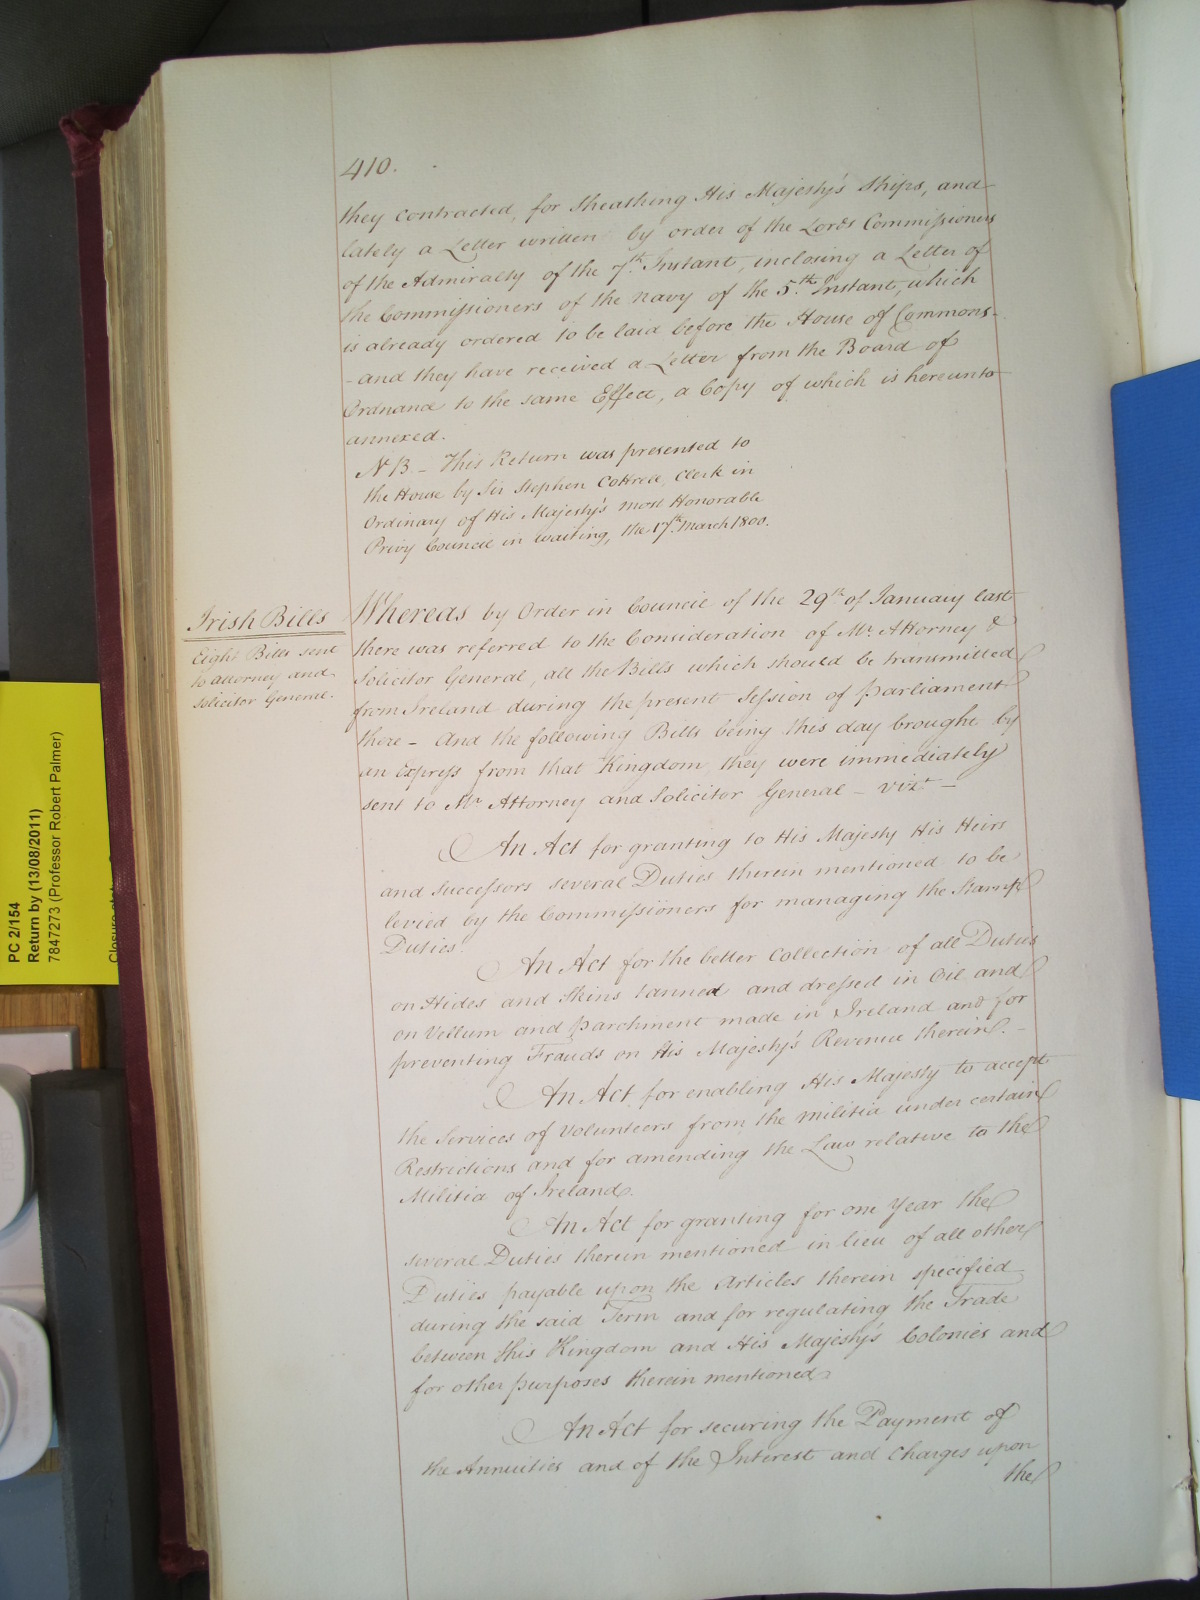 410.
they contracted, for Sheathing His Majesty's Ships, and
lately a Letter written by order of the Lords Commissioners
of the Admiralty of the 7th Instant, inclosing a Letter of
the Commissioners of the Navy of the 5th Instant, which
is already ordered to be laid before the House of Commons-
- and they have received a Letter from the Board of
Ordnance to the same Effect, a Copy of which is hereunto
annexed.
NB - This Return was presented to
the House by Sir Stephen Cottrell, Clerk in
Ordinary of His Majesty's most Honorable
Privy Council in waiting, the 17th March 1800.
Irish Bills
Eight Bills sent
to attorney and
solicitor General.
Whereas by Order in Council of the 29th of January last
there was referred to the Consideration of Mr Attorney &
Solicitor General, all the Bills which should be transmitted
from Ireland during the present Session of Parliament
there - And the following Bills being this day brought by
an Express from that Kingdom, they were immediately
sent to Mr Attorney and Solicitor General - vizt -
An Act for granting to His Majesty His Heirs
and Successors several Duties therein mentioned to be
levied by the Commissioners for managing the Stamp
Duties.
An Act for the better Collection of all Duties
on Hides and Skins tanned and dressed in Oil and
on Vellum and Parchment made in Ireland and for
preventing Frauds on His Majesty's Revenue therein. -
An Act for enabling His Majesty to accept
the Services of Volunteers from the militia under certain
Restrictions and for amending the Law relative to the
Militia of Ireland.
An Act for granting for one Year the
several Duties therein mentioned in lieu of all other
Duties payable upon the Articles therein specified
during the said Term and for regulating the Trade
between this Kingdom and His Majesty's Colonies and
for other purposes therein mentioned
An Act for securing the Payment of
the Annuities and of the Interest and Charges upon
the
PC 2/154
Return by (13/08/2011)
7847273 (Professor Robert Palmer)